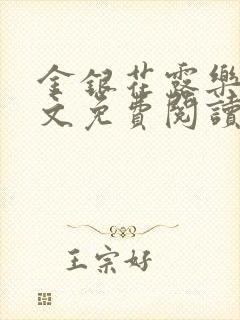 金銀花露樂
文免費閱讀
王宗好